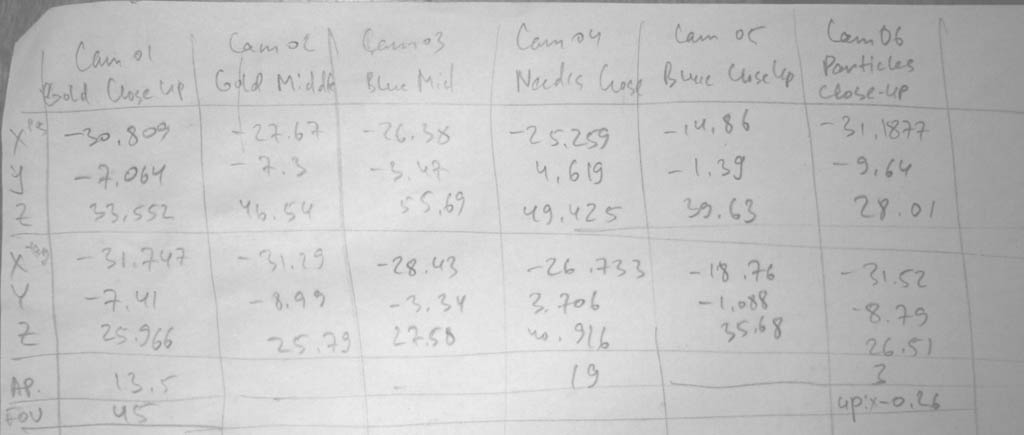 Cam 01 Cam 02 Cam 03 Cam 04 Cam 05 Cam 06
Gold Close Up Gold Middle Blue Mid Needls Close Blue CloseUp Particles Close-up
X pos -30,809 -27.67 -26.38 -25.259 -14.86 -31,1877
Y -7,064 -7.3 -3.47 4,619 -1.39 -9,64
Z 33,552 46.54 55,69 49,425 39.63 28.01
X -31.747 -31.29 -28.43 -26.733 -18.76 -31.52
Y -7.41 -8.99 -3.34 3.706 -1.088 -8.79
Z 25.966 25.79 27.58 40.916 35.68 26.51
AP. 13.5 19 3
FOV 45 -0.26